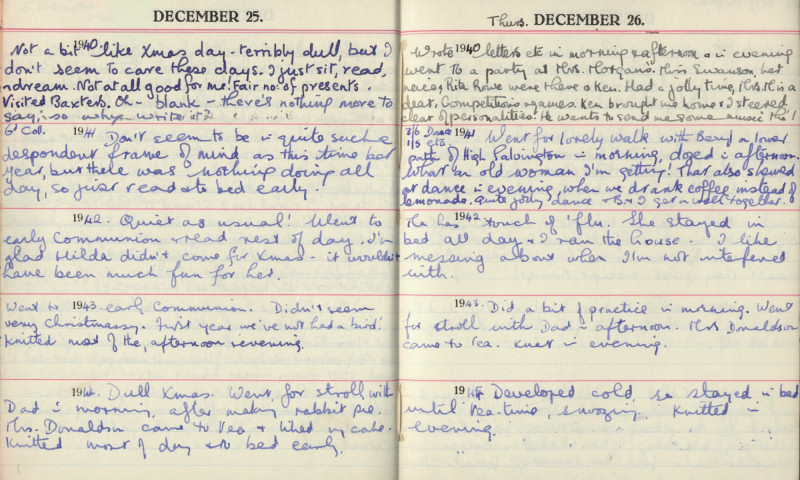 DECEMBER 25.
1940
Not a bit like Xmas day - terribly dull, but I
don't seem to care these days. I just sit, read,
& dream. Not at all good for me! Fair no: of presents.
Visited Baxters. Oh - blank - there's nothing more to
say, so why write it?
6d Coll.
1941 Don't seem to be in quite such a
despondent frame of mind as this time last
year, but there was nothing doing all
day, so just read & to bed early.
1942. Quiet as usual! Went to
early Communion & read rest of day. I'm
glad Hilda didn't come for Xmas - it wouldn't
have been much fun for her.
Went to 1943 early Communion. Didn't seem
very Christmassy. First year we've not had a bird!
Knitted most of the afternoon & evening.
1944. Dull Xmas. Went for stroll with
Dad in morning, after making rabbit pie.
Mrs. Donaldson came to tea & liked my cake.
Knitted most of day & to bed early.
Thurs. DECEMBER 26.
Wrote 1940 letters etc in morning & afternoon & in evening
went to a party at Mrs. Morgans. Miss Swanson, her
neice, Rita Rowe were there & Ken. Had a jolly time, Mrs. M is a
dear. Competitions & games. Ken brought me home & I steered
clear of personalities! He wants to send me some music
1941
Went for lovely walk with Beryl on lower
path of High Salvington in morning, dozed in afternoon.
What an old woman I'm getting! That also showed
at dance in evening, when we drank coffee instead of
lemonade. Quite jolly dance & I get on well together.
Ma has 1942 touch of 'flu. She stayed in
bed all day & I ran the house. I like
messing about when I'm not interfered
with.
1943. Did a bit of practice in morning. Went
for stroll with Dad in afternoon. Mrs Donaldson
came to tea. Knit in evening.
Developed cold, so stayed in bed
until tea-time, snoozing. Knitted in
evening.